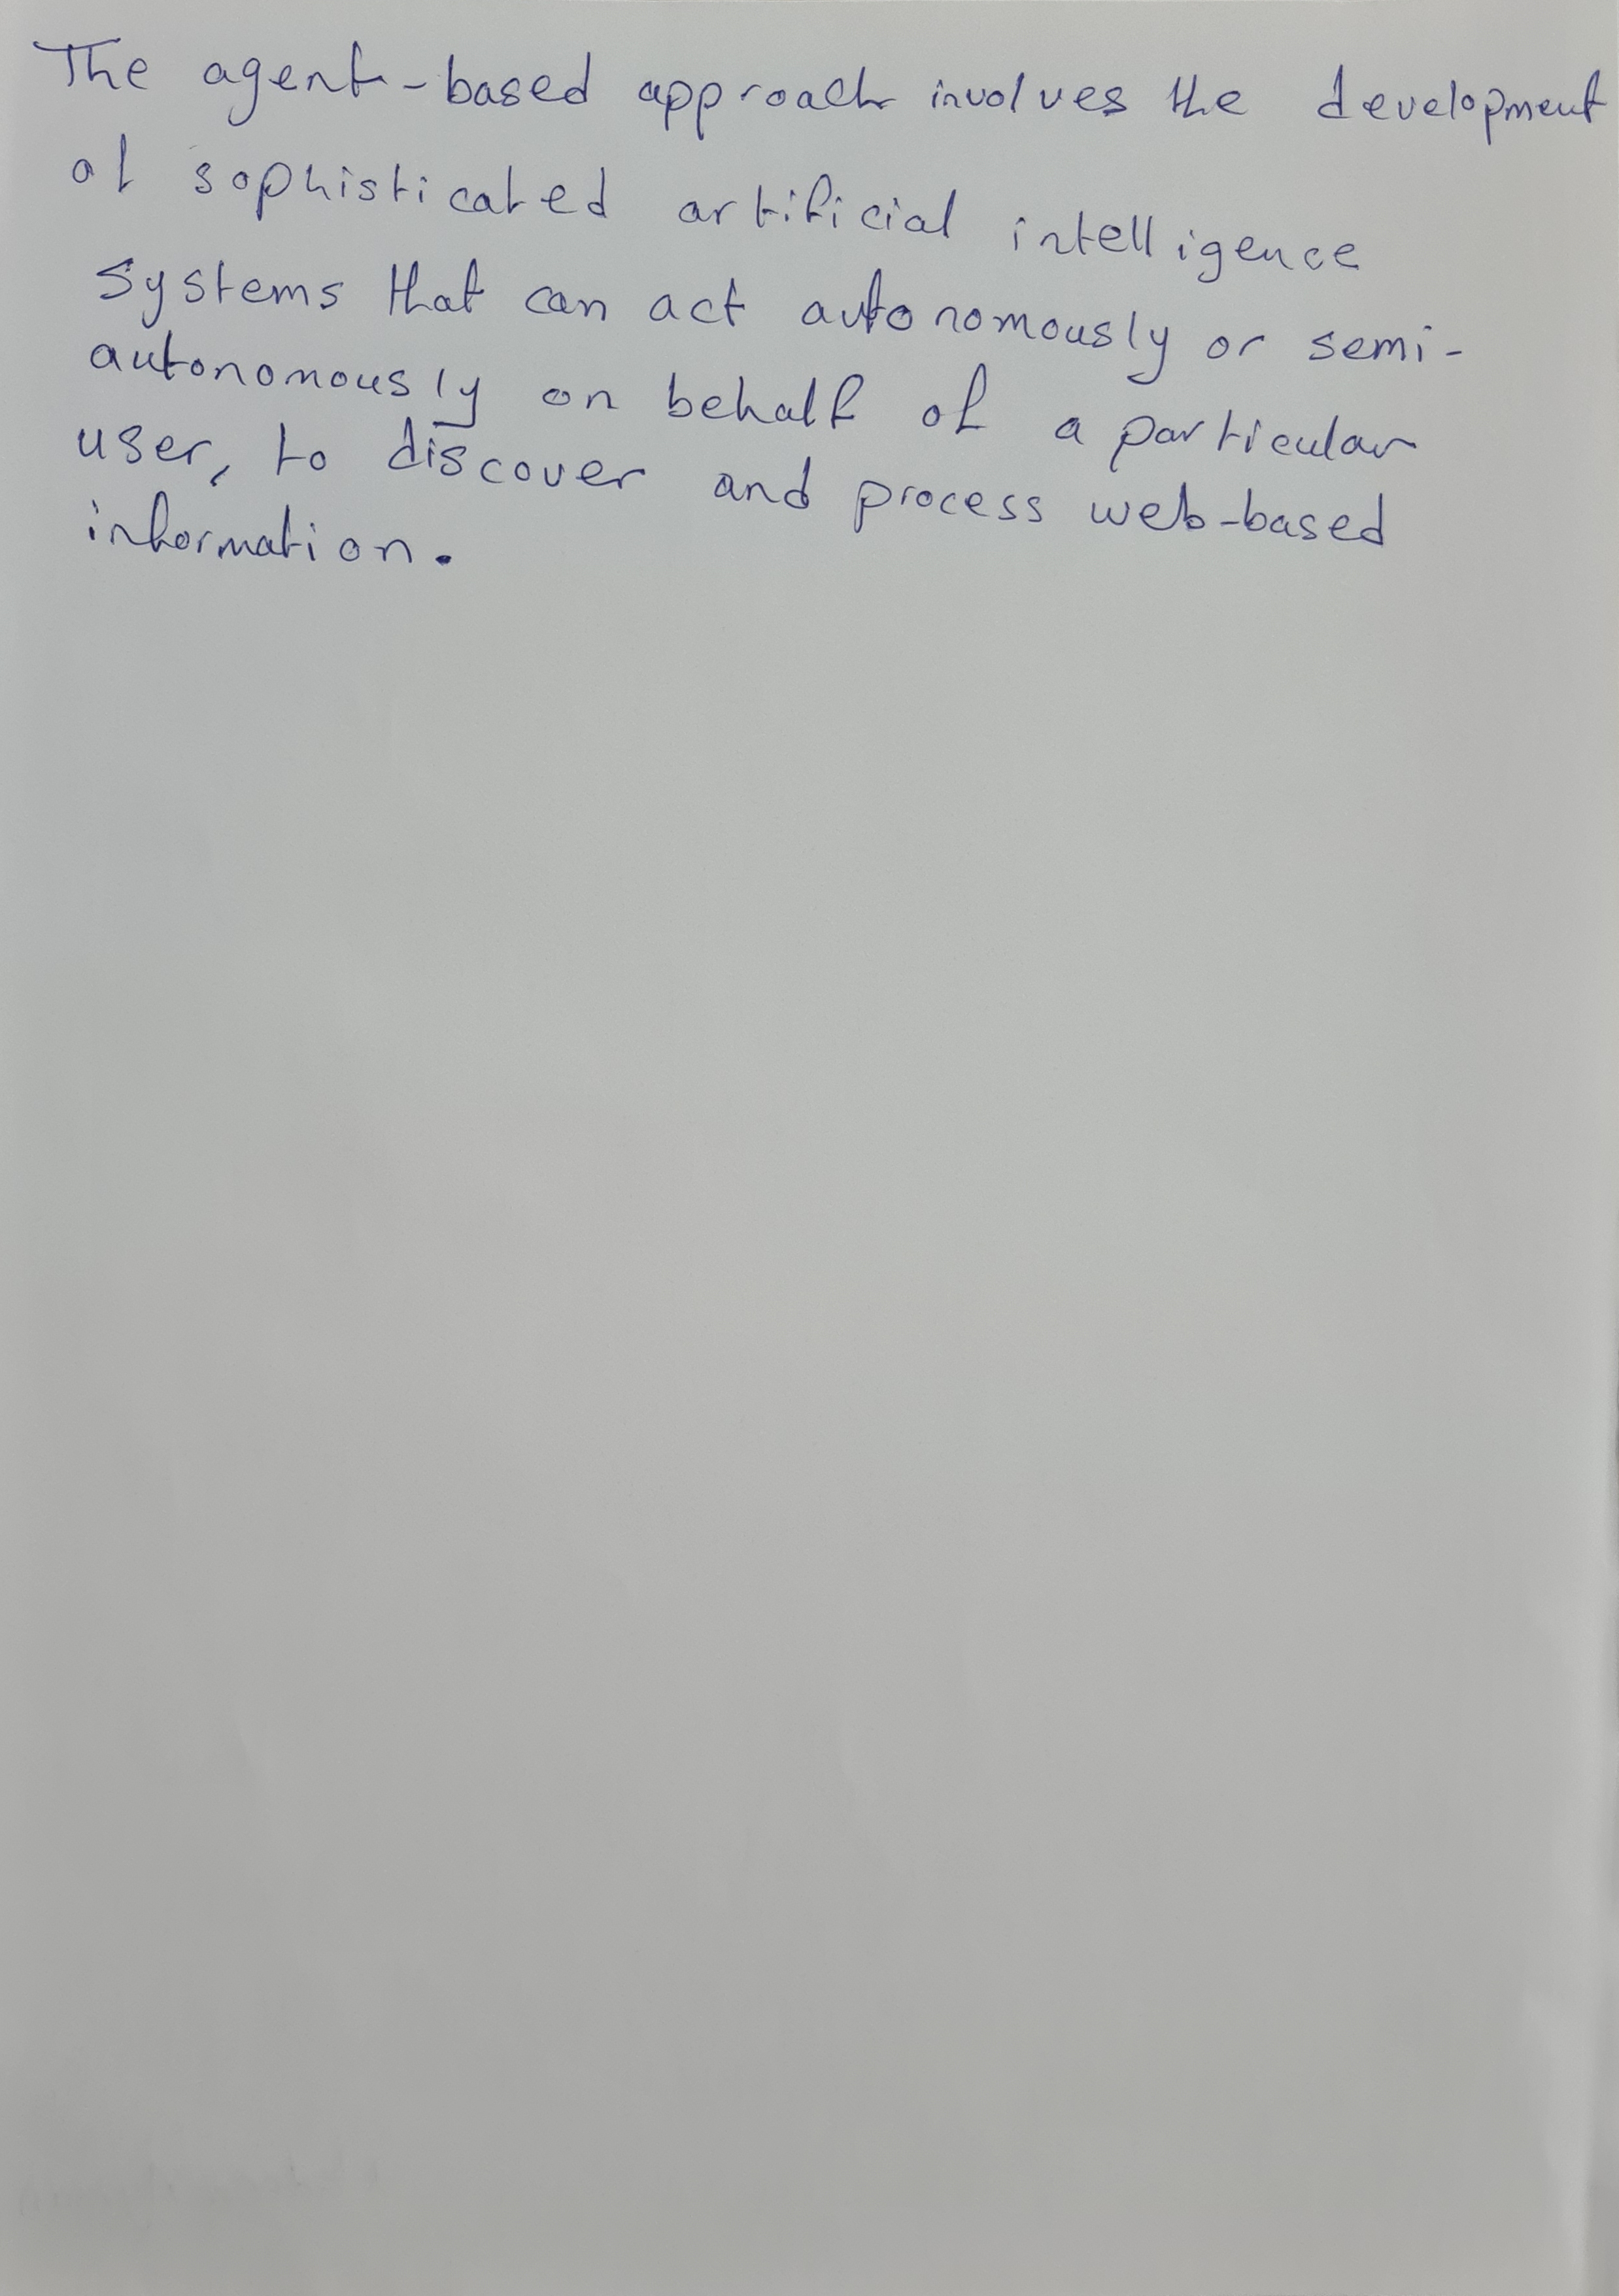 The agent-based approach involves the development
of sophisticated artificial intelligence
systems that can act autonomously or semi-
autonomously on behalf of a particular
user, to discover and process web-based
information.